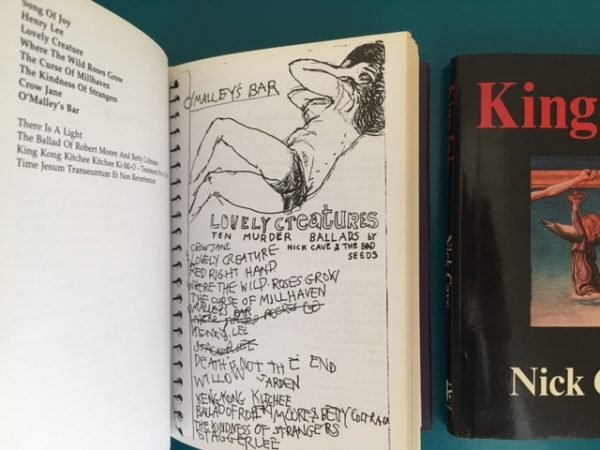 Song Of Joy
Henry Lee
Lovely Creature
Where The Wild Roses Grow
The Curse Of Millhaven
The Kindness Of Strangers
Crow Jane
O'Malley's Bar
There Is A Light
The Ballad Of Robert Moore And Betty Coltrane
King Kong Kitchee Kitchee Ki-Mi-O - Treatment For A
Time Jesum Transeuntum Et Non Revertentum
O'MALLEY'S BAR
LOVELY CREATURES
TEN MURDER BALLADS by
NICK CAVE & THE BAD
SEEDS
CROW JANE
LOVELY CREATURE
RED RIGHT HAND
WHERE THE WILD ROSES GROW
THE CURSE OF MILLHAVEN
O'MALLEYS BAR
HENRY LEE
STAGGERLEE
DEATH IS NOT THE END
WILLOW GARDEN
KINGKONG KITCHEE
BALLAD OF ROBERT MOORE & BETTY COLTRANE
THE KINDNESS OF STRANGERS
STAGGERLEE
King Ink
Nick Cave
King
Nick C